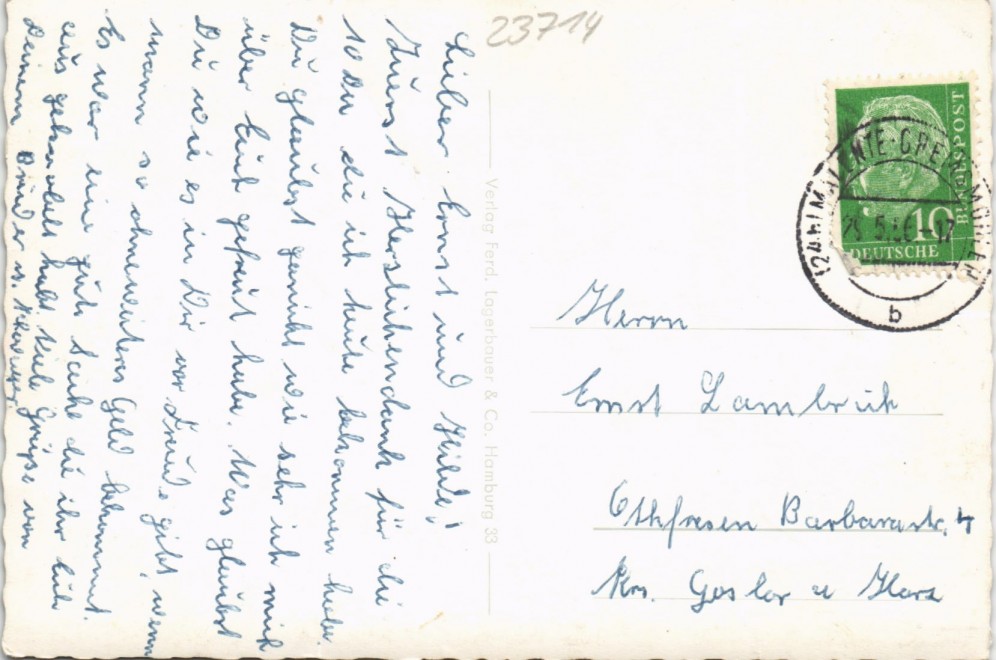 23714
Lieber Ernst und Hilde!
Zuerst Herzlichendank für die
10 DM die ich heute bekommen habe.
Du glaubst garnicht wie sehr ich mich
über Euch gefreut habe. Was glaubst
Du wie es in Dir vor Freude gibt, wenn
mann so ohneweiteres Geld bekommt.
Es war ein gute Sache die ihr Euch
ausgedacht habt. Viele Grüße von
Deinem Bruder u.
Verlag Ferd. Lagerbauer & Co. Hamburg 33
DEUTSCHE
BUNDESPOST
10
(24b) MALENTE-GREMSMÜHLEN
b
Herrn
Ernst Lambrich
Othfresen Barbarastr. 4
Krs. Goslar a Harz